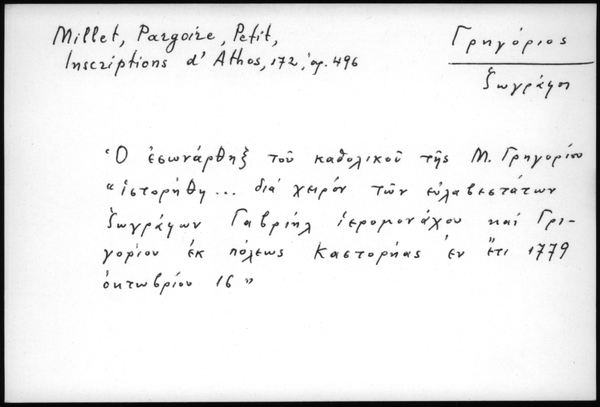 Millet, Pargoire, Petit,
Inscriptions d'Athos, 172, ἀρ. 496
Γρηγόριος
ζωγράφοι
Ὁ ἐσωνάρθηξ τοῦ καθολικοῦ τῆς Μ. Γρηγορίου
"ἱστορήθη... διά χειρόν τῶν εὐλαβεστάτων
ζωγράφων Γαβριήλ ἱερομονάχου καί Γρι-
γορίου ἐκ πόλεως Καστορήας ἐν ἔτι 1779
ὀκτωβρίου 16"